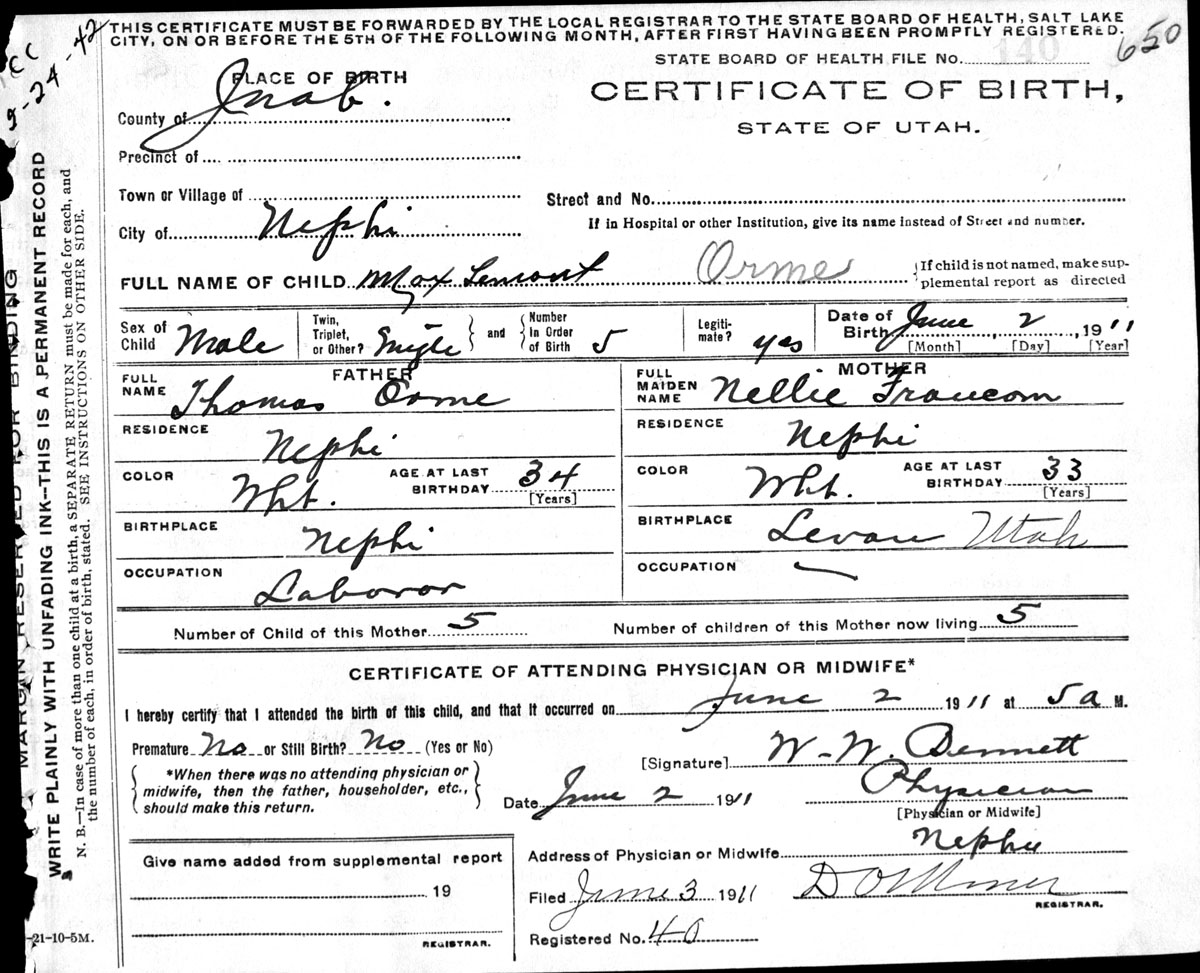 THIS CERTIFICATE MUST BE FORWARDED BY THE LOCAL REGISTRAR TO THE STATE BOARD OF HEALTH, SALT LAKE
CITY, ON OR BEFORE THE 5TH OF THE FOLLOWING MONTH, AFTER FIRST HAVING BEEN PROMPTLY REGISTERED.
650
9-24-42
STATE BOARD OF HEALTH FILE No. 140
PLACE OF BIRTH
CERTIFICATE OF BIRTH,
STATE OF UTAH.
County of Juab.
Precinct of
Town or Village of
Street and No.
City of Nephi
If in Hospital or other Institution, give its name instead of Street and number.
FULL NAME OF CHILD Max Lemont Orme
{If child is not named, make sup-
plemental report as directed
Sex of Child Male
Twin, Triplet, or Other? Single } and { Number In Order of Birth 5
Legiti- mate? yes
Date of Birth June 2, 1911
[Month] [Day] [Year]
FATHER
FULL NAME Thomas Orme
RESIDENCE Nephi
COLOR Wht. AGE AT LAST BIRTHDAY 34
[Years]
BIRTHPLACE Nephi
OCCUPATION Laboror
MOTHER
FULL MAIDEN NAME Nellie Francom
RESIDENCE Nephi
COLOR Wht. AGE AT LAST BIRTHDAY 33
[Years]
BIRTHPLACE Levan Utah
OCCUPATION —
Number of Child of this Mother 5 Number of children of this Mother now living 5
CERTIFICATE OF ATTENDING PHYSICIAN OR MIDWIFE*
I hereby certify that I attended the birth of this child, and that it occurred on June 2 1911 at 5a M.
Premature No or Still Birth? No (Yes or No)
{ *When there was no attending physician or
midwife, then the father, householder, etc.,
should make this return. }
[Signature] W. W. Bennett
Date June 2 1911 Physician
[Physician or Midwife]
Give name added from supplemental report
19
REGISTRAR.
Address of Physician or Midwife Nephi
Filed June 3 1911
REGISTRAR.
Registered No. 40
MARGIN RESERVED FOR BINDING
WRITE PLAINLY WITH UNFADING INK--THIS IS A PERMANENT RECORD
N. B.—In case of more than one child at a birth, a SEPARATE RETURN must be made for each, and
the number of each, in order of birth, stated. SEE INSTRUCTIONS ON OTHER SIDE.
-21-10-5M.